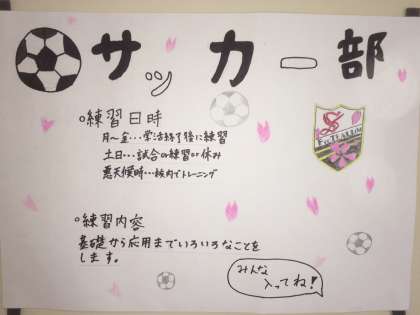 サッカー部
○練習日時
月〜金…学活終了後に練習
土日…試合の練習or休み
悪天候時…校内でトレーニング
○練習内容
基礎から応用までいろいろなことを
します。
みんな
入ってね!